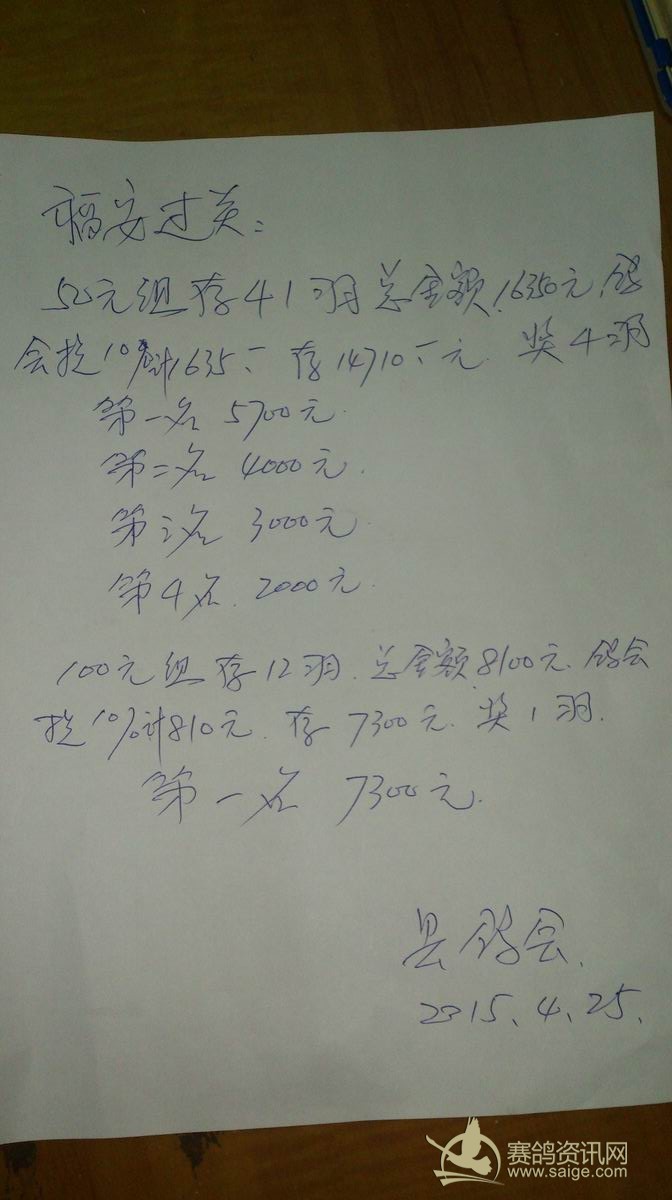 福安过关:
50元组存41羽总金额16350元,鸽
会提10%计1635、一存14710、一元.奖4羽
第一名 5700元.
第二名 4000元.
第三名 3000元.
第4名. 2000元.
100元组存12羽.总金额8100元.鸽会
提10%计810元.存7300元.奖1羽.
第一名 7300元.
县鸽会.
2015.4.25.
赛鸽资讯网
www.saige.com